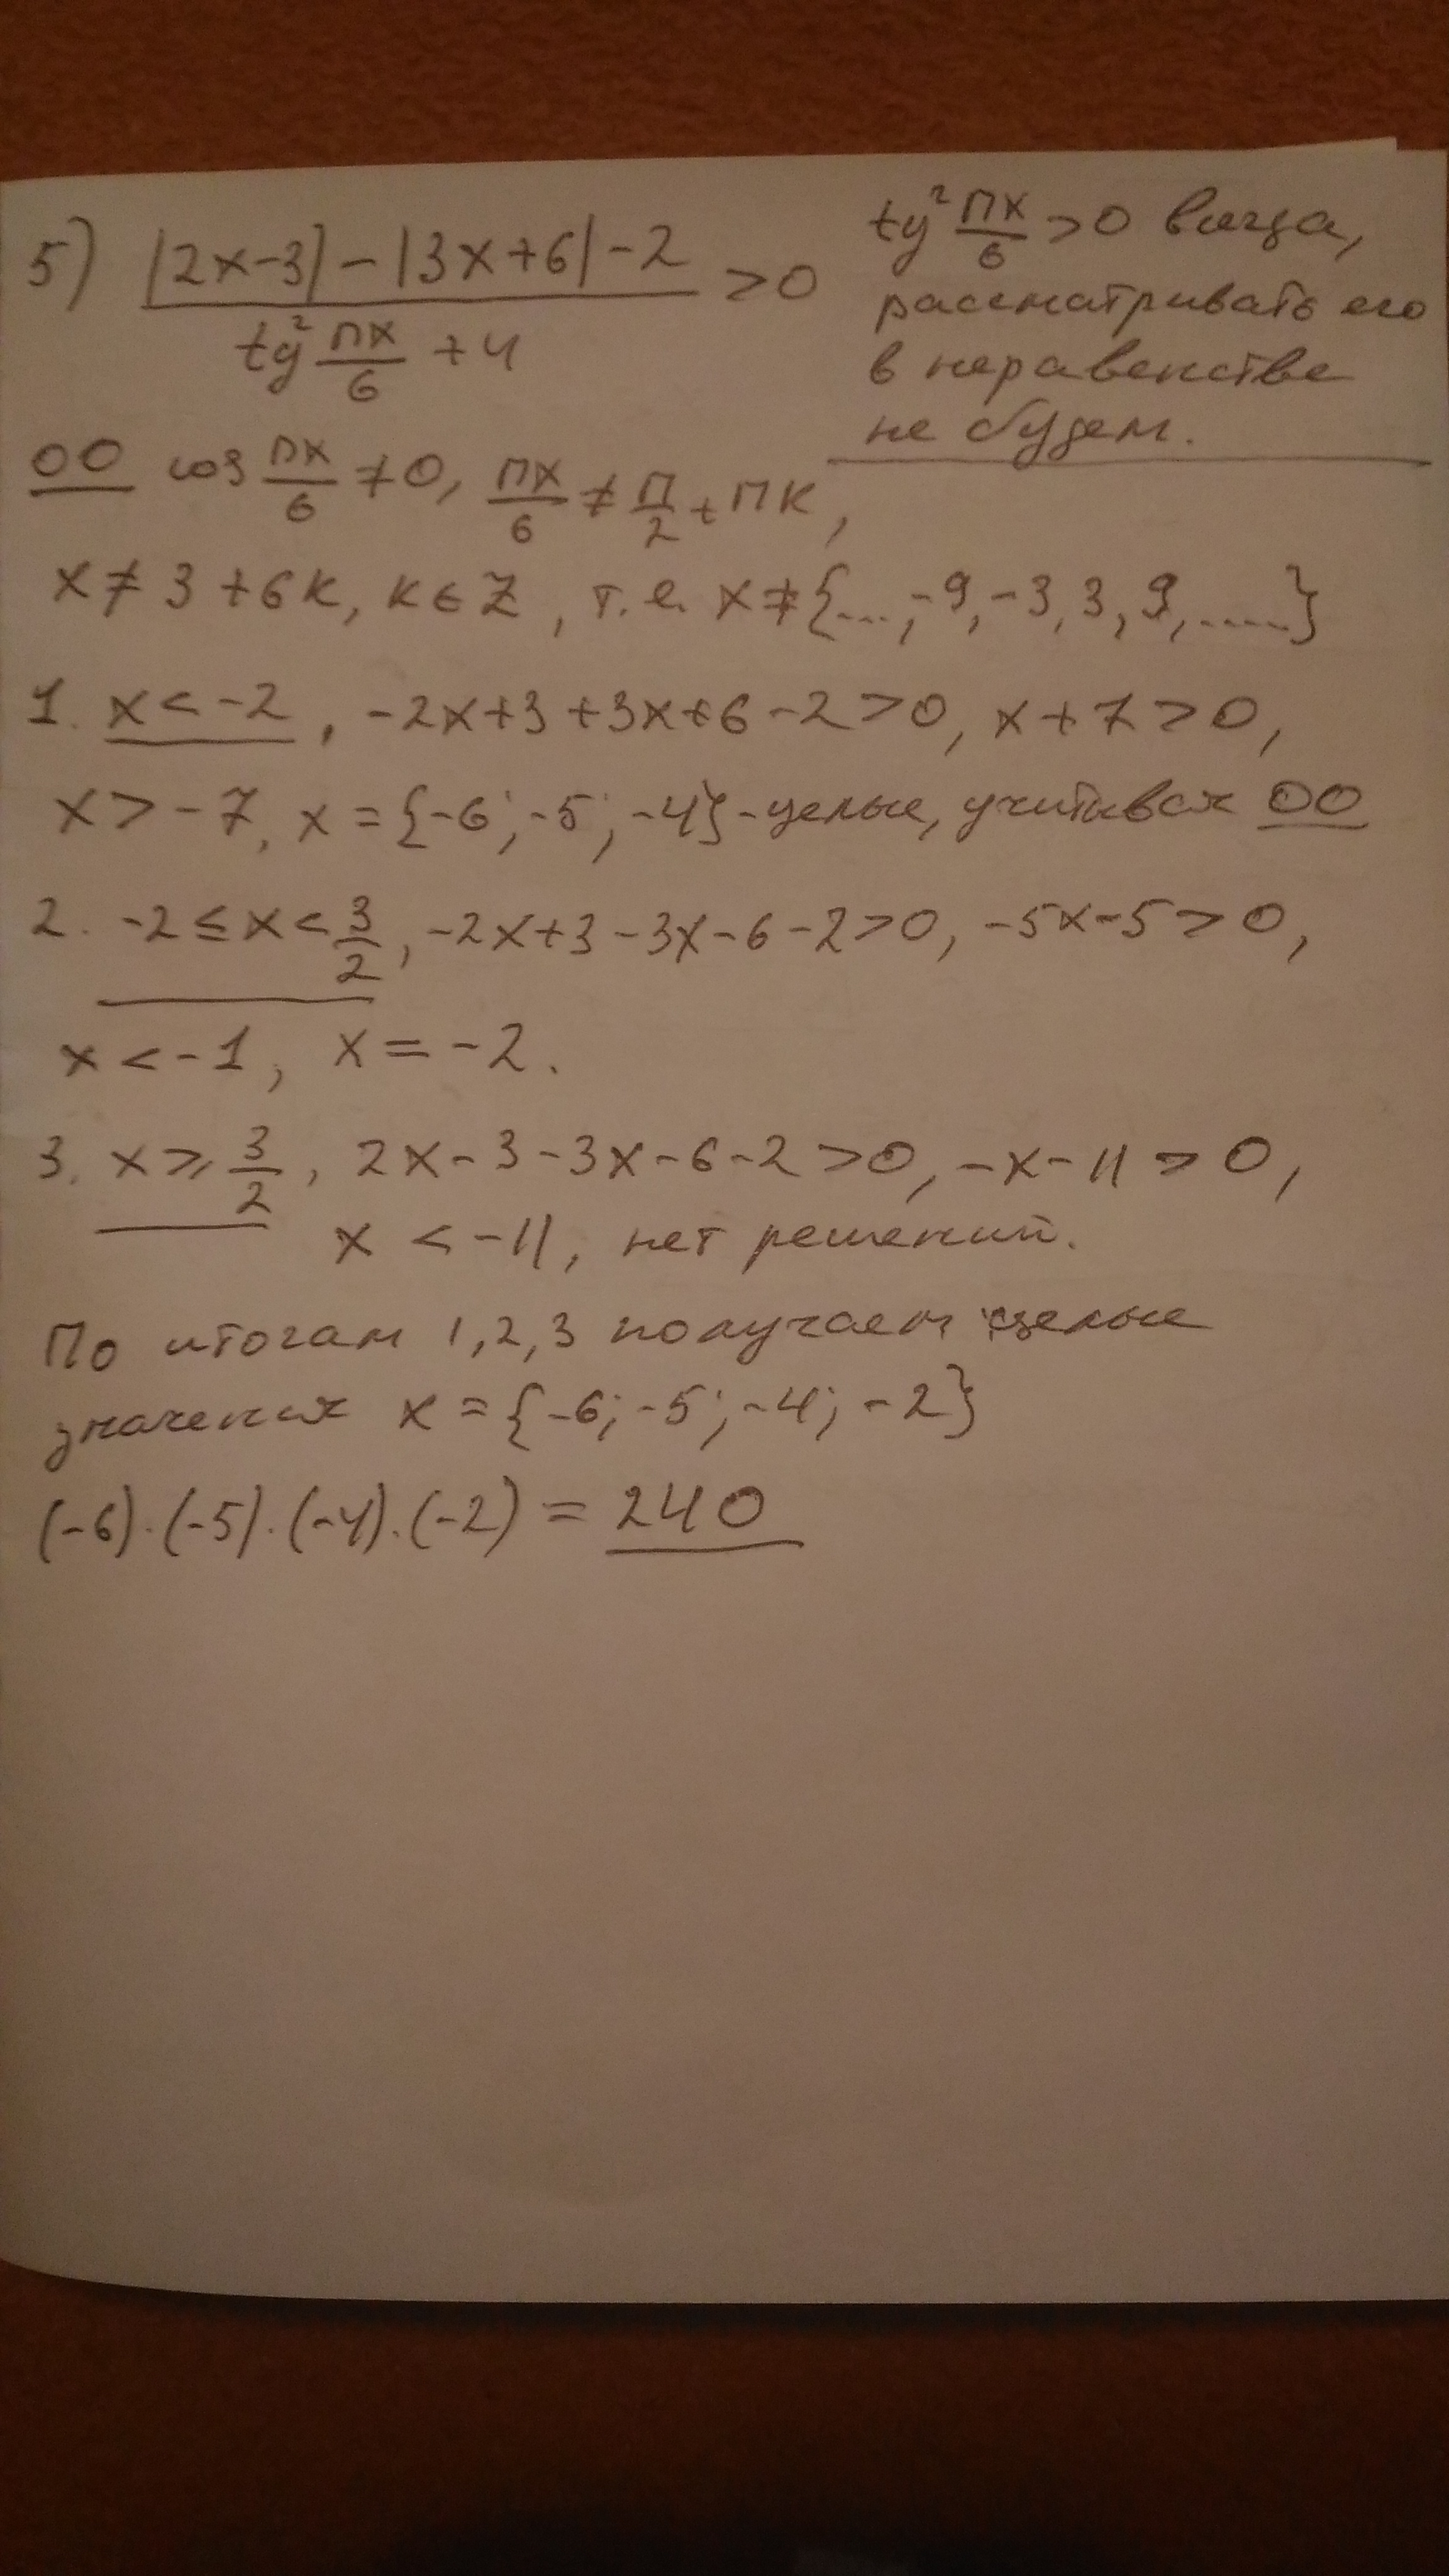 5) (|2x-3|-|3x+6|-2)/(tg² πx/6 +4) >0
tg² πx/6 >0 всегда,
рассматривать его
в неравенстве
не будем.
OO cos πx/6 ≠0, πx/6 ≠ π/2 + πk,
x≠3+6k, k∈Z, т.е. x≠{...,-9,-3,3,9,.....}
1. x<-2, -2x+3+3x+6-2>0, x+7>0,
x>-7, x={-6;-5;-4}-целые, учитывая OO
2. -2≤x<3/2, -2x+3-3x-6-2>0, -5x-5>0,
x<-1, x=-2.
3. x⩾3/2, 2x-3-3x-6-2>0, -x-11>0,
x<-11, нет решений.
По итогам 1,2,3 получаем целые
значения x={-6;-5;-4;-2}
(-6)·(-5)·(-4)·(-2)=240